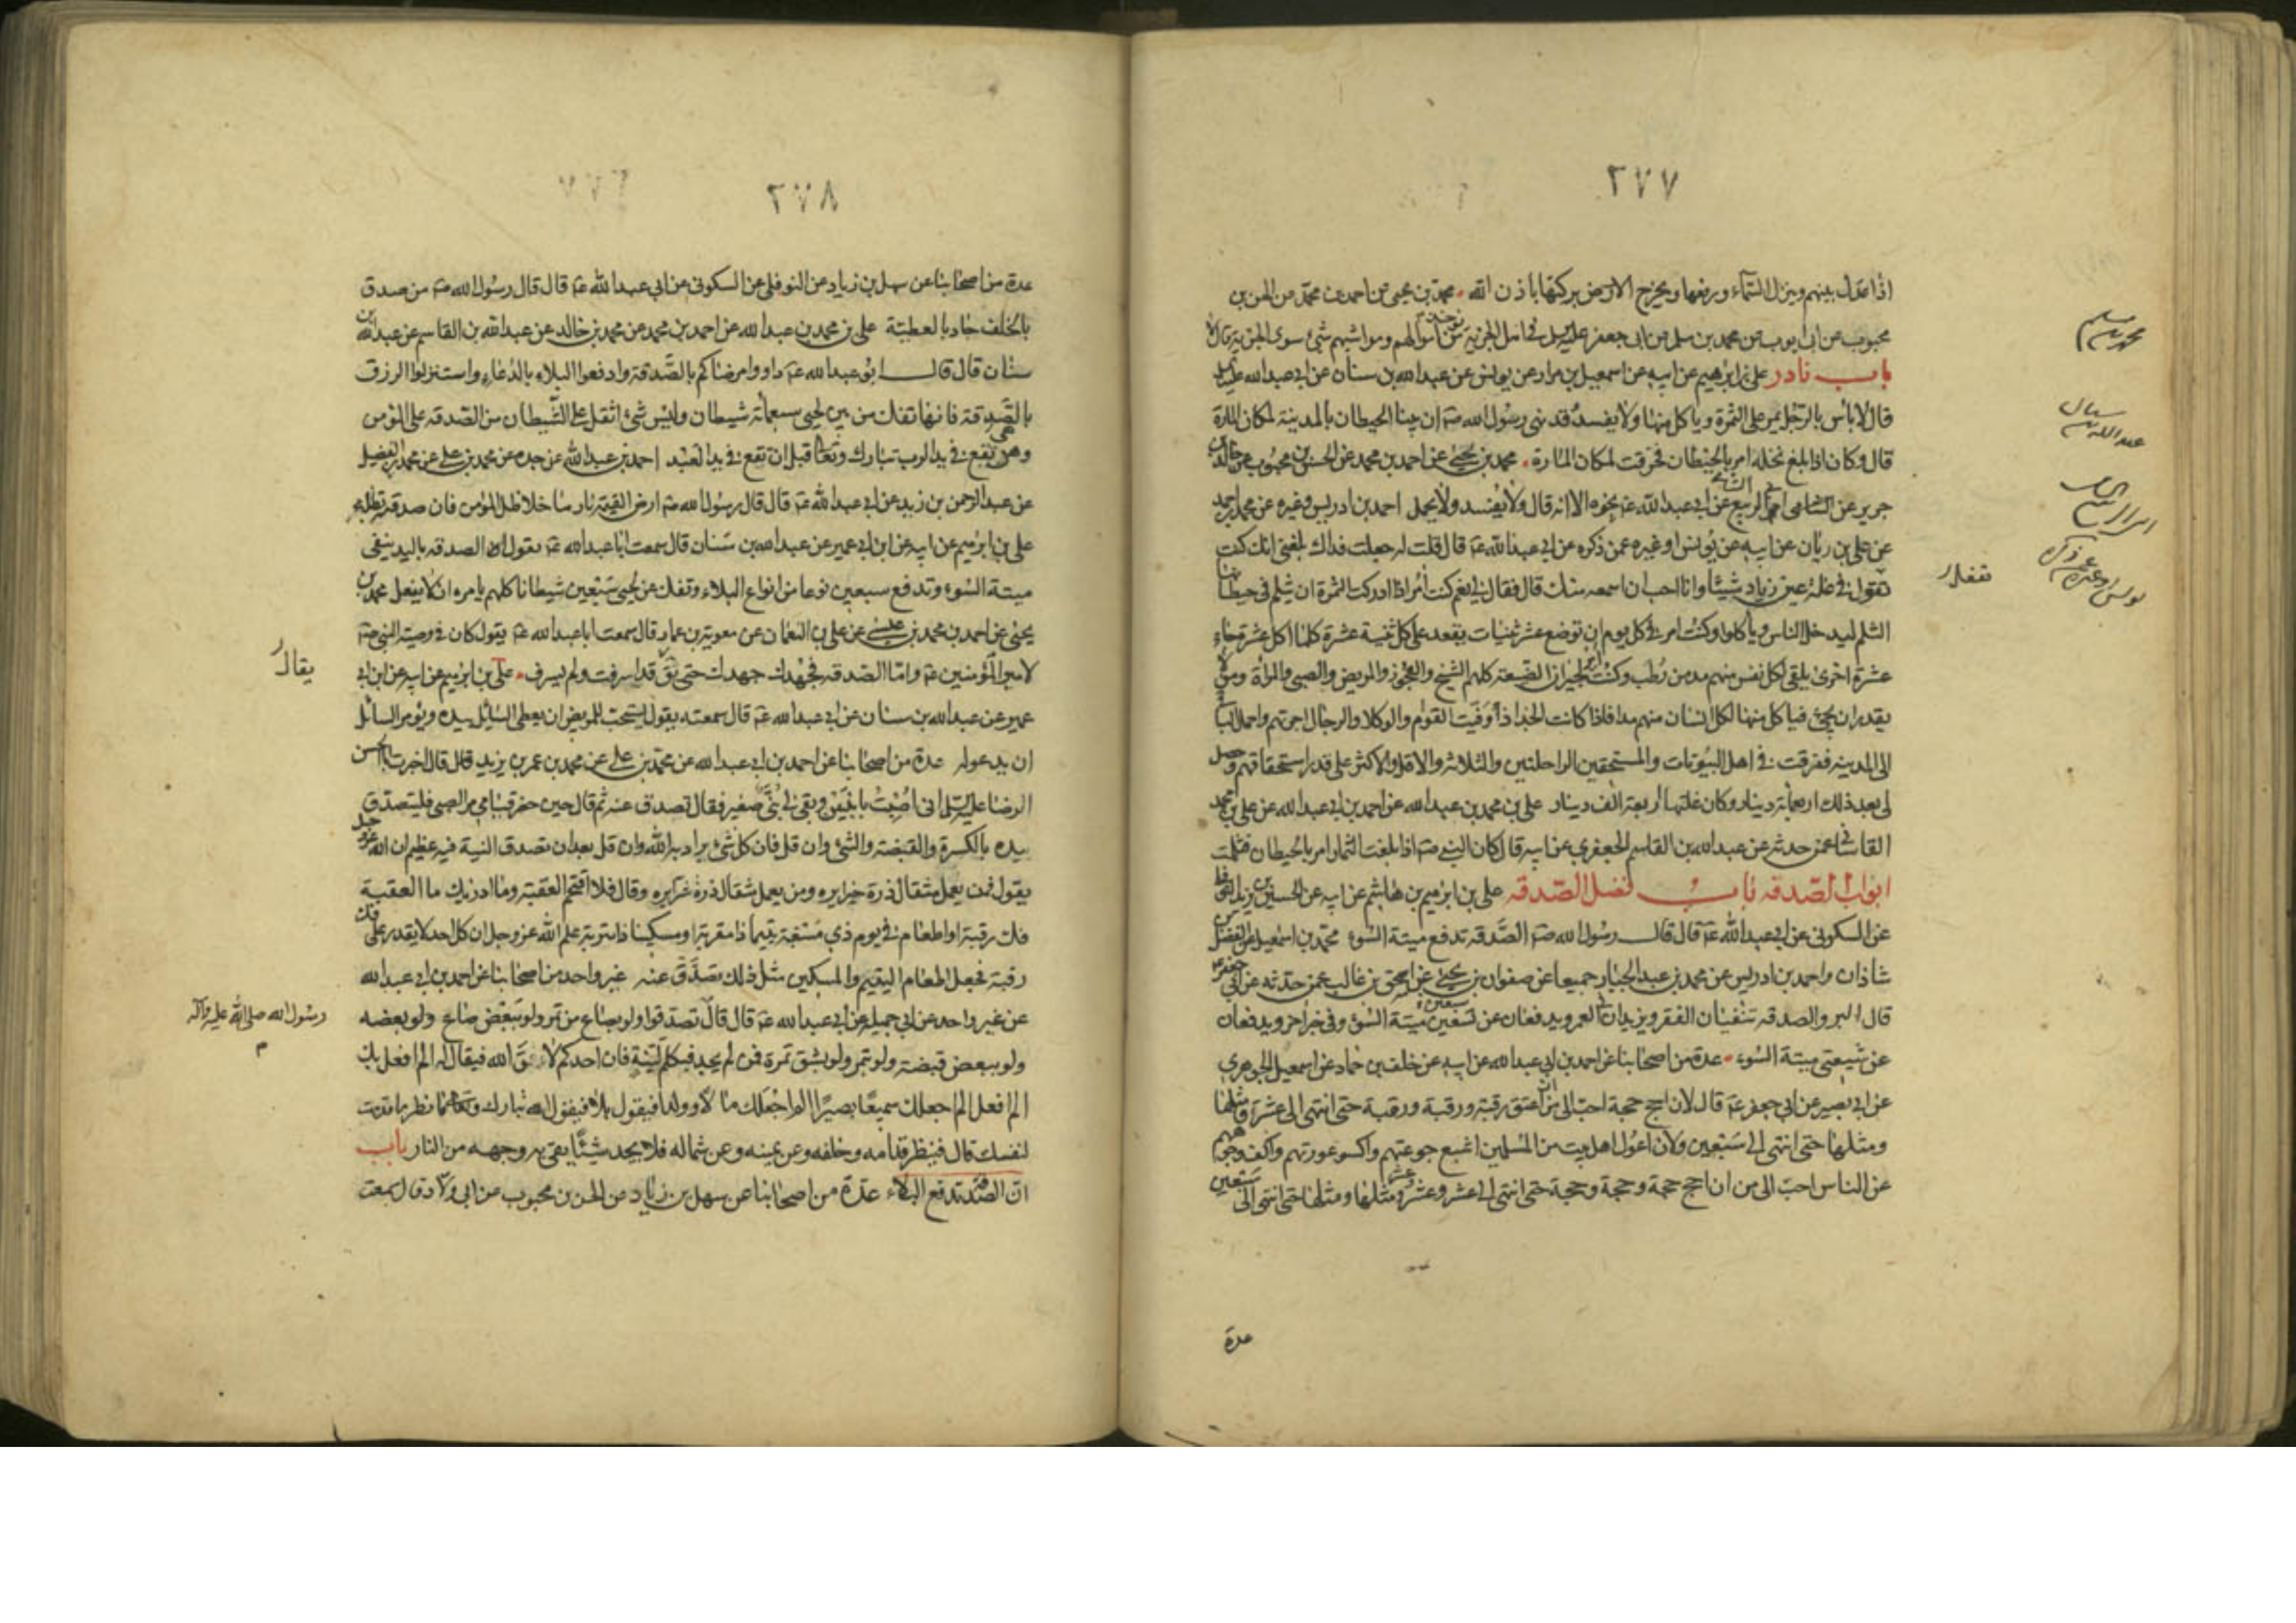 ٢٧٧
اذا عدل بينهم وينزل السمآء ورزقها ويخرج الارض بركتها باذن الله محمد بن يحيى عن احمد بن محمد عن الحسن بن
محبوب عن ابى ايوب عن محمد بن مسلم عن ابى جعفر عليه السلم فى اهل الجزية يؤخذ من اموالهم ومواشيهم شئ سوى الجزية قال لا
باب نادر على بن ابرهيم عن ابيه عن اسمعيل بن مرار عن يونس عن عبدالله بن سنان عن ابى عبدالله عليه السلم
قال لا باس بالرجل يمر على الثمرة وياكل منها ولا يفسد قد نهى رسول الله صم ان يبنا الحيطان بالمدينة لمكان المارة
قال وكان اذا بلغ نخله امر بالحيطان فخرقت لمكان المارة محمد بن يحيى عن احمد بن محمد عن الحسن بن محبوب عن خالد بن
جرير عن الشامى ابى الربيع عن ابى عبدالله عم نحوه الا انه قال ولا يفسد ولا يحمل احمد بن ادريس وغيره عن محمد بن احمد
عن على بن ريان عن ابيه عن يونس او غيره عمن ذكره عن ابى عبدالله عم قال قلت له جعلت فداك بلغنى انك كنت
تقول فى غلة عين زياد شيئا وانا احب ان اسمعه منك قال فقال لى نعم كنت امر اذا ادركت الثمرة ان يثلم فى حيطانها
الثلم ليدخل الناس وياكلوا وكنت امر فى كل يوم ان توضع عشر ثنيات يقعد على كل ثنية عشرة كلما اكل عشرة جاء
عشرة اخرى يلقى لكل نفس منهم مد من رطب وكنت امر لجيران الضيعة كلهم الشيخ والعجوز والمريض والصبى والمراة ومن لا
يقدر ان يجئ فياكل منها لكل انسان منهم مدا فاذا كانت الجذاذ اوفيت القوام والوكلا والرجال اجرتهم واحمل الباقى
الى المدينه ففرقت فى اهل البيوتات والمستحقين الراحلتين والثلاثة والاقل والاكثر على قدر استحقاقهم وحصل
لى بعد ذلك اربعمائة دينار وكان غلتها اربعة الف دينار على بن محمد بن عبدالله عن احمد بن ابى عبدالله عن على بن محمد
القاسانى عمن حدثه عن عبدالله بن القاسم الجعفرى عن ابيه قال كان النبى صم اذا بلغت الثمار امر بالحيطان فثلمت
ابواب الصدقه باب فضل الصدقه على بن ابرهيم بن هاشم عن ابيه عن الحسين بن يزيد النوفلى
عن السكونى عن ابى عبدالله عم قال قال رسول الله صم الصدقه تدفع ميتة السوء محمد بن اسمعيل عن الفضل بن
شاذان واحمد بن ادريس عن محمد بن عبد الجبار جميعا عن صفوان بن يحيى عن اسحق بن غالب عمن حدثه عن ابى جعفر عم
قال البر والصدقه تنفيان الفقر ويزيدان فى العمر ويدفعان عن تسعين ميتة السوء وفى خبر اخر ويدفعان
عن شيعتى ميتة السوء عدة من اصحابنا عن احمد بن ابى عبدالله عن ابيه عن خلف بن حماد عن اسمعيل الجوهرى
عن ابى بصير عن ابى جعفر عم قال لان احج حجة احب الى من ان اعتق رقبة ورقبة ورقبة حتى انتهى الى عشرة ومثلها
ومثلها حتى انتهى الى سبعين ولان اعول اهل بيت من المسلمين اشبع جوعتهم واكسو عورتهم واكف وجوههم
عن الناس احب الى من ان احج حجة وحجة وحجة حتى انتهى الى عشر وعشر ومثلها ومثلها حتى انتهى الى سبعين
عدة
محمد بن مسلم
عبدالله بن سنان
ابى الربيع الشامى
يونس او غيره عمن ذكره
٢٧٨
عدة من اصحابنا عن سهل بن زياد عن النوفلى عن السكونى عن ابى عبدالله عم قال قال رسول الله صم من صدق
بالخلف جاد بالعطية على بن محمد بن عبدالله عن احمد بن محمد عن محمد بن خالد عن عبدالله بن القاسم عن عبدالله بن
سنان قال قال ابو عبدالله عم داووا مرضاكم بالصدقة وادفعوا البلاء بالدعاء واستنزلوا الرزق
بالصدقة فانها تفك من بين لحيى سبعمائة شيطان وليس شئ اثقل على الشيطان من الصدقه على المؤمن
وهى تقع فى يد الرب تبارك وتعالى قبل ان تقع فى يد العبد احمد بن عبدالله عن جده عن محمد بن على عن محمد بن الفضيل
عن عبد الرحمن بن زيد عن ابى عبدالله عم قال قال رسول الله صم ارض القيمة نار ما خلا ظل المؤمن فان صدقته تظله
على بن ابرهيم عن ابيه عن ابن ابى عمير عن عبدالله بن سنان قال سمعت ابا عبدالله عم يقول الصدقه باليد ينفى
ميتة السوء وتدفع سبعين نوعا من انواع البلاء وتفك عن لحيى سبعين شيطانا كلهم يامره ان لا يفعل محمد بن
يحيى عن احمد بن محمد بن عيسى عن على بن النعمان عن معوية بن عمار قال سمعت ابا عبدالله عم يقول كان فى وصية النبى صم
لامير المؤمنين عم واما الصدقه فجهدك جهدك حتى يق قد اسرفت ولم يسرف على بن ابرهيم عن ابيه عن ابن ابى
عمير عن عبدالله بن سنان عن ابى عبدالله عم قال سمعته يقول يستحب للمريض ان يعطى السائل بيده ويؤمر السائل
ان يدعو له عدة من اصحابنا عن احمد بن ابى عبدالله عن محمد بن على عن محمد بن عمر بن يزيد قال قال اخبرت ابا الحسن
الرضا عليه السلم انى اصبت بابنين وبقى لى بنى صغير فقال تصدق عنه ثم قال حين حضر قيامى مر الصبى فليتصدق
بيده بالكسرة والقبضة والشئ وان قل فان كل شئ يراد به الله وان قل بعد ان تصدق النية فيه عظيم ان الله عز وجل
يقول فمن يعمل مثقال ذرة خيرا يره ومن يعمل مثقال ذرة شرا يره وقال فلا اقتحم العقبة وما ادريك ما العقبة
فك رقبة او اطعام فى يوم ذى مسغبة يتيما ذا مقربة او مسكينا ذا متربة علم الله عز وجل ان كل احد لا يقدر على فك
رقبة فجعل اطعام اليتيم والمسكين مثل ذلك تصدق عنه غير واحد من اصحابنا عن احمد بن ابى عبدالله
عن غير واحد عن ابى جميلة عن ابى عبدالله عم قال قال تصدقوا ولو بصاع من تمر ولو ببعض صاع ولو بعضه
ولو ببعض قبضة ولو بتمر ولو بشق تمرة فمن لم يجد فبكلمة لينة فان احدكم لاق الله فيقال له الم افعل بك
الم افعل الم اجعلك سميعا بصيرا الم اجعل لك مالا وولدا فيقول بلى فيقول الله تبارك وتعالى فانظر ما قدمت
لنفسك قال فينظر قدامه وخلفه وعن يمينه وعن شماله فلا يجد شيئا يقى به وجهه من النار باب
ان الصدقة تدفع البلاء عدة من اصحابنا عن سهل بن زياد عن الحسن بن محبوب عن ابى ولاد قال سمعت
يقال
رسول الله صلى الله عليه واله
م